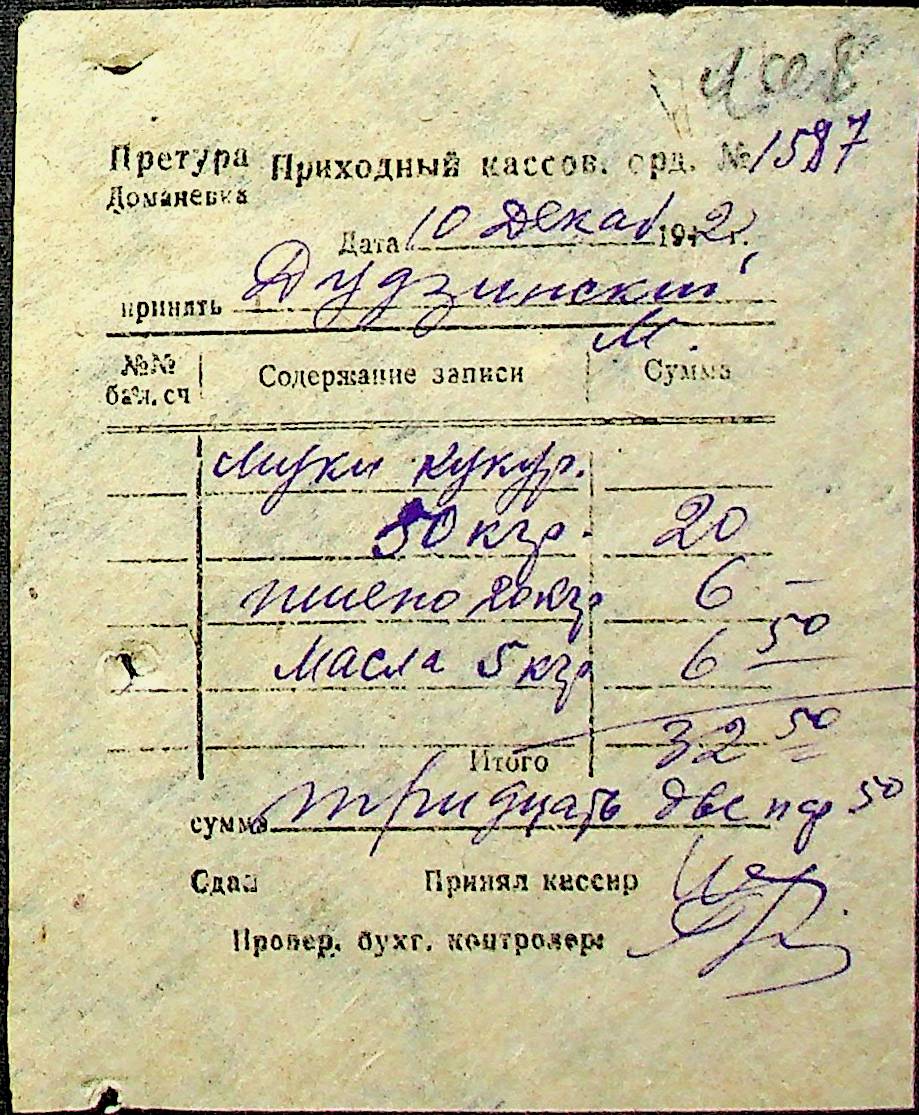 Претура Приходный кассов. орд. № 1587
Доманевка
Дата 10 Декаб 1942 г.
принять Дудзинский
М.
№№ бал. сч Содержание записи Сумма
муки кукур.
50 кгр. 20
пшено 20 кгр 6 —
Масла 5 кгр 6 50
Итого 32 50
сумма тридцать две пф 50
Сдал Принял кассир
Провер. бухг. контролер